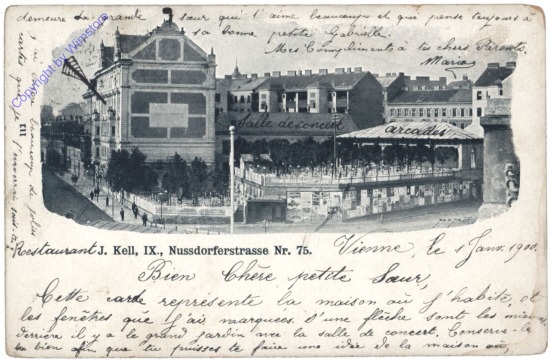 demeure ta aimante sœur qui t'aime beaucoup et que pense toujours à
sa bonne petite Gabrielle
Mes Compliments à tes chers Parents.
Marie
Copyright by Winstore
J'ai beaucoup de jolies
cartes que je
t'enverrai
III
Salle de concert
arcades
Restaurant J. Kell, IX., Nussdorferstrasse Nr. 75.
Vienne, le 1 Janv. 1900.
Bien Chère petite Sœur,
Cette carde représente la maison où j'habite, et
les fenêtres que j'ai marquées d'une flèche sont les miennes
derrière il y a le grand jardin avec la salle de concert. Conserve-la
bien afin que tu puisses te faire une idée de la maison où